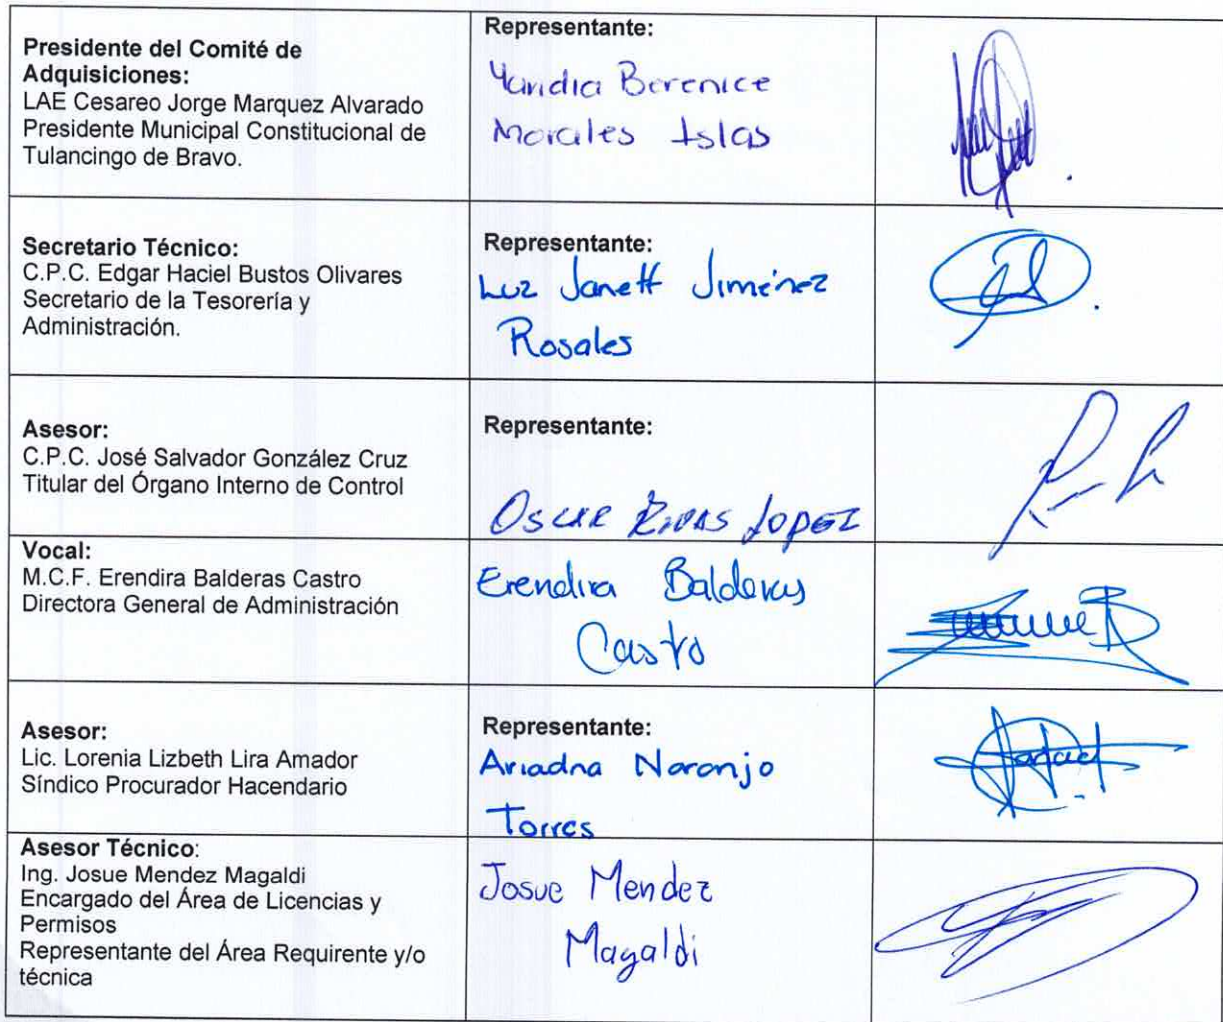 Presidente del Comité de
Adquisiciones:
LAE Cesareo Jorge Marquez Alvarado
Presidente Municipal Constitucional de
Tulancingo de Bravo.
Representante:
Yandia Berenice
Morales Islas
Secretario Técnico:
C.P.C. Edgar Haciel Bustos Olivares
Secretario de la Tesorería y
Administración.
Representante:
Luz Janett Jiménez
Rosales
Asesor:
C.P.C. José Salvador González Cruz
Titular del Órgano Interno de Control
Representante:
Oscar Rivas Lopez
Vocal:
M.C.F. Erendira Balderas Castro
Directora General de Administración
Erendira Balderas
Castro
Asesor:
Lic. Lorenia Lizbeth Lira Amador
Síndico Procurador Hacendario
Representante:
Ariadna Naranjo
Torres
Asesor Técnico:
Ing. Josue Mendez Magaldi
Encargado del Área de Licencias y
Permisos
Representante del Área Requirente y/o
técnica
Josue Mendez
Magaldi